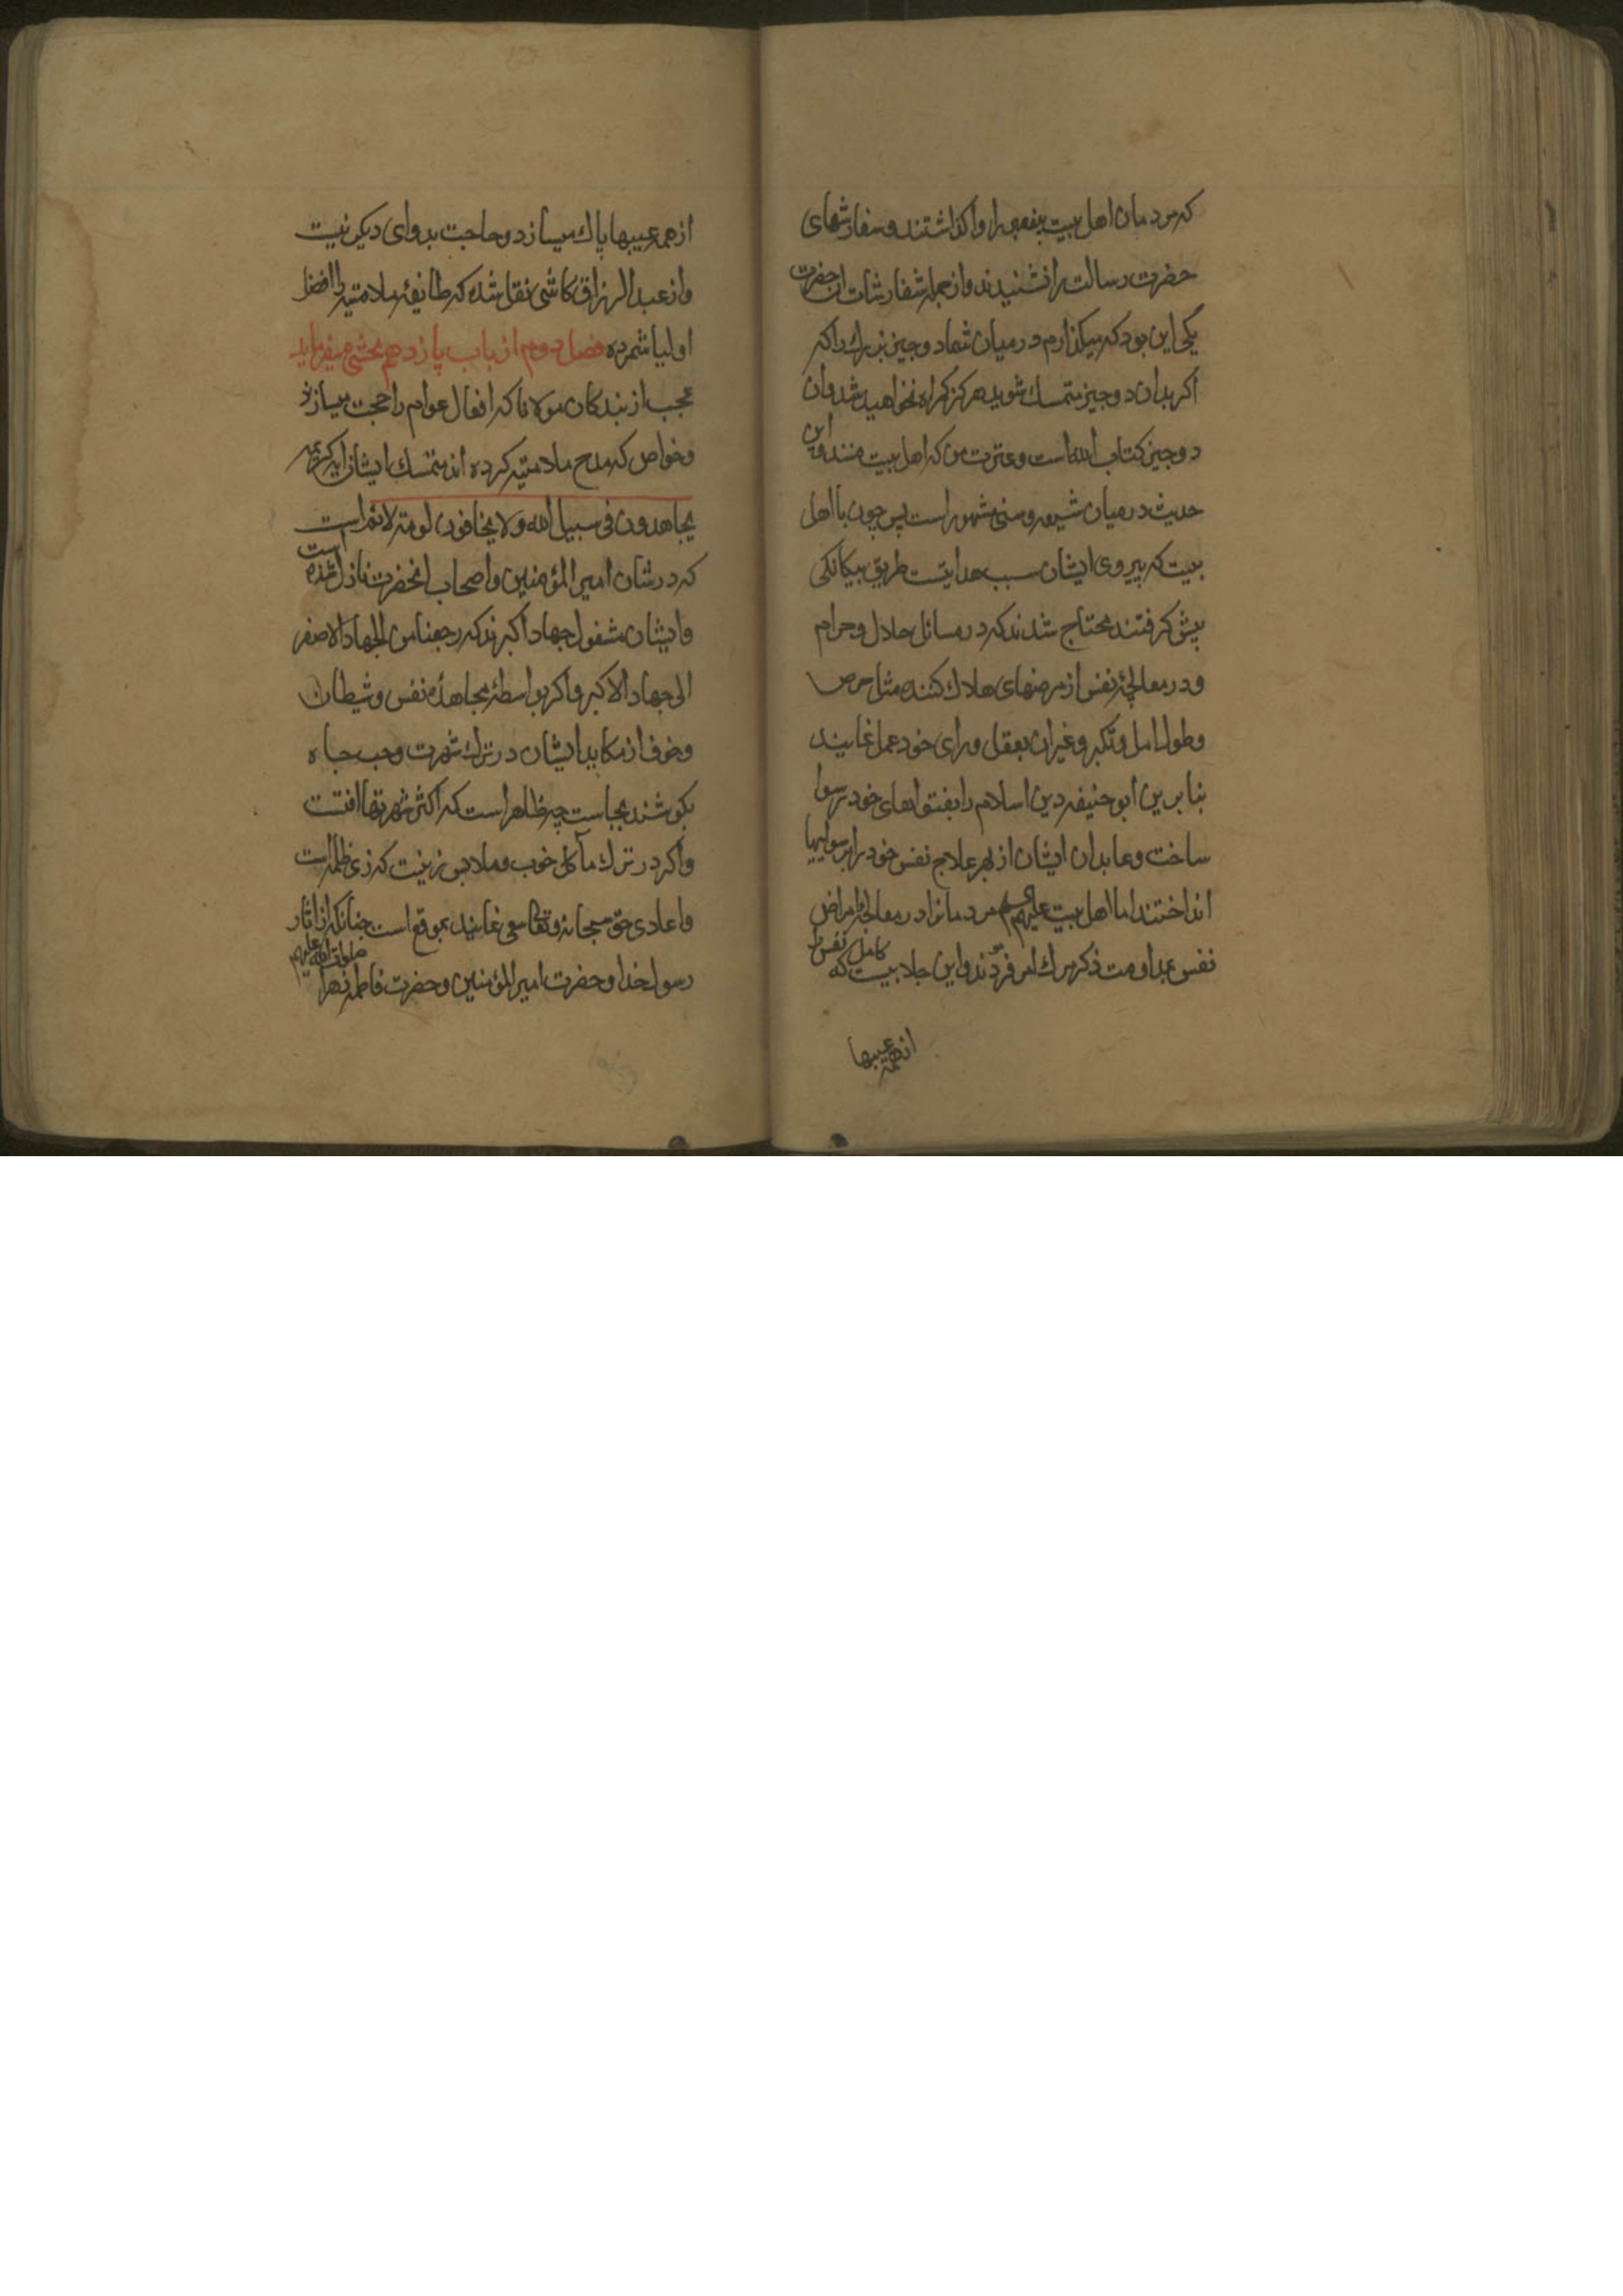 که مردمان اهل بیت پیغمبر را واکذاشتند و سفارشهای
حضرت رسالت را نشنیدند و از جمله شفارشات انحضرت
یکی این بود که میکذارم در میان شما دو چیز بزرك را که
اکر بدان دو چیز متمسك شوید هرکز کمراه نخواهید شد و ان
دو چیز کتاب الله است و عترت من که اهل بیت منند و این
حدیث در میان شیعه و سنی مشهور است پس چون با اهل
بیت که پیروی ایشان سبب هدایتست طریق بیکانکی
پیش کرفتند محتاج شدند که در مسائل حلال و حرام
و در معالجۀ نفس از مرضهای هلاك کننده مثل حرص
و طول امل و تکبر و غیر ان بعقل و رای خود عمل نمایند
بنا برین ابو حنیفه دین اسلام را بفتواهای خود رسوا
ساخت و عابدان ایشان از بهر علاج نفس خود را برسوایها
انداختند اما اهل بیت علیهم السلم مردمانرا در معالجۀ امراض
نفس بمداومت ذکر مرك امر فرمودند و این جلابیست که کامل نفس را
از همه عیبها
از همه عیبها پاك میسازد و حاجت بدوای دیکر نیست
و از عبد الرزاق کاشی نقل شده که طایفۀ ملامتیه را افضل
اولیا شمرده فصل دوم از باب پازدهم محشی میفرماید
عجب از بندکان مولانا که افعال عوام را حجت میسازند
و خواص که مدح ملامتیه کرده اند متمسك ایشان ایه کریمه
یجاهدون فی سبیل الله و لا یخافون لومة لائم است
که در شان امیر المؤمنین و اصحاب انحضرت نازل شده است
و ایشان مشغول جهاد اکبرند که رجعنا من الجهاد الاصغر
الی جهاد الاکبر و اکر بواسطۀ مجاهدۀ نفس و شیطان
و خوف از مکاید ایشان در ترك شهرت و حب جاه
بکوشند بجاست چه ظاهر است که اکثر شهرتها افتست
و اکر در ترك مآکل خوب و ملابس زینت که زی ظلمه است
و اعادی حق سبحانه و تعالی سعی نمایند بموقع است چنانکه از اثار
رسول خدا و حضرت امیر المؤمنین و حضرت فاطمه زهرا صلوات الله علیهم